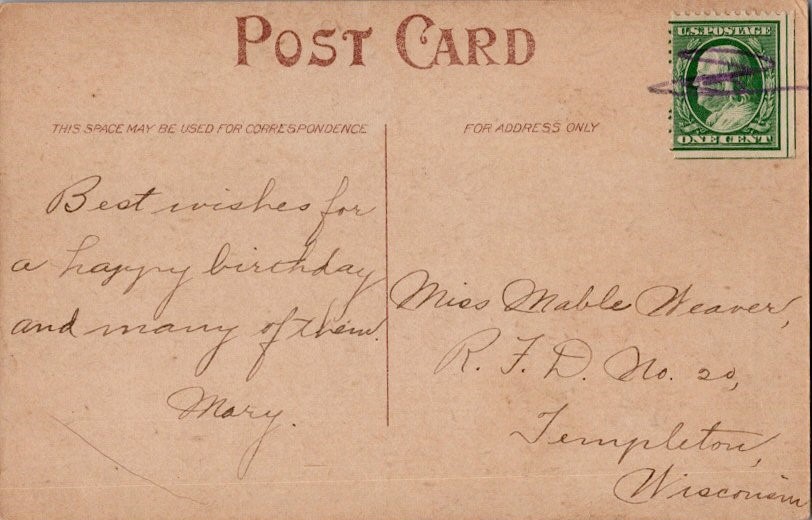 POST CARD
U.S. POSTAGE
ONE CENT
THIS SPACE MAY BE USED FOR CORRESPONDENCE
FOR ADDRESS ONLY
Best wishes for
a happy birthday
and many of them.
Mary.
Miss Mable Weaver,
R. F. D. No. 20,
Templeton,
Wisconsin